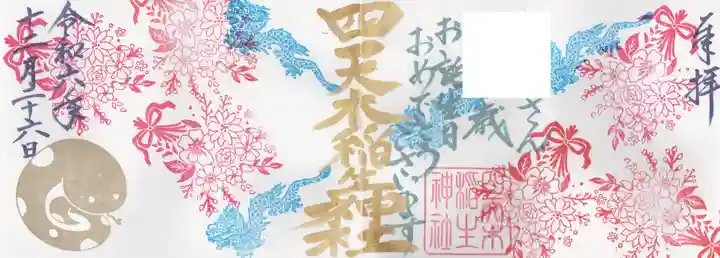 奉拝
さん
歳
お誕生日
おめでとうございます
四天木稲生神社
四天木稲生神社
令和六年
十二月二十六日